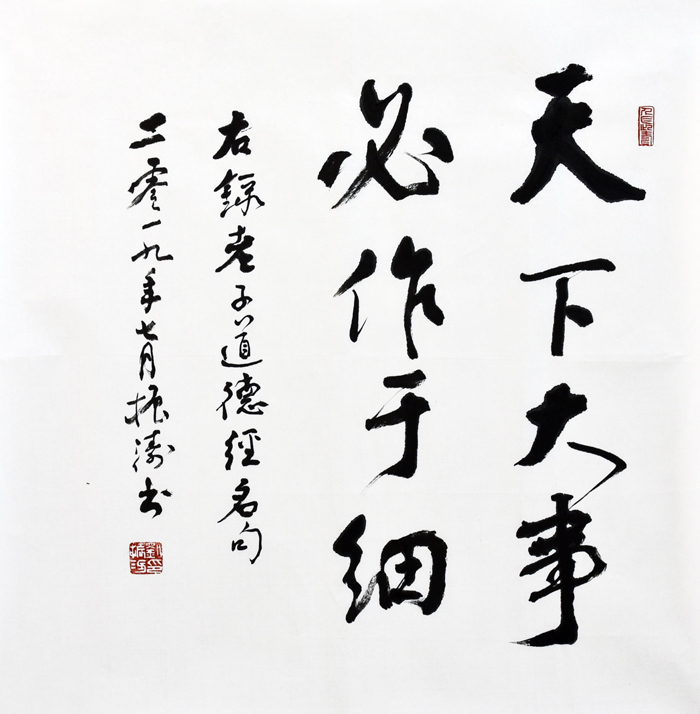 天下大事
必作于细
右錄老子道德經名句
二零一九年七月振濤书